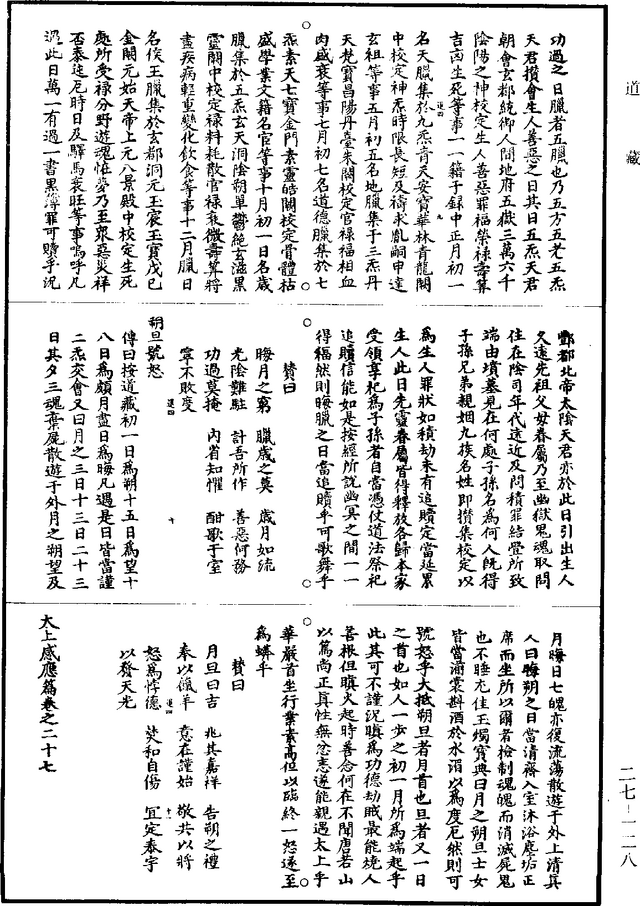 道藏
功過之日臘者五臘也乃五方五老五炁
天君攢會生人善惡之日其日五炁天君
朝會玄都統御人間地府五嶽三萬六千
陰陽之神校定生人善惡罪福榮祿壽筭
吉凶生死等事一一籍于錄中正月初一
名天臘集於九炁青天安寶華林青龍闕
中校定神炁時限長短及禱求胤嗣申達
玄祖等事五月初五名地臘集于三炁丹
天梵寶昌陽丹臺朱闕校定官祿福相血
肉盛衰等事七月初七名道德臘集於七
炁素天七寶金門素靈皓闕校定骨體枯
盛學業文籍名官等事十月初一日名歲
臘集於五炁玄天洞陰朔單鬱絕玄滋黑
靈闕中校定祿料耗散官祿衰微壽筭將
盡疾病輕重變化飲食等事十二月臘日
名侯王臘集於玄都洞元玉宸王寶戊巳
金闕元始天帝上元八景殿中校定生死
處所受祿分野遊魂恠夢乃至衆惡災祥
否泰迍厄時日及驛馬衰旺等事嗚乎凡
遇此日萬一有過一書黑簿罪可贖乎況
酆都北帝太陰天君亦於此日引出生人
久遠先祖父母眷屬乃至幽獄鬼魂取問
住在陰司年代遠近及問積罪結舋所致
端由墳墓見在何處子孫名爲何人旣得
子孫兄弟親姻九族名姓即攢集校定以
爲生人罪狀如積劫未有追贖定當延累
生人此日先靈眷屬皆得釋放各歸本家
受領享祀爲子孫者自當憑仗道法祭祀
追贖信能如是按經所說幽冥之間一一
得福然則晦臘之日當追贖乎可歌舞乎
贊曰
晦月之窮 臘歲之莫 歲月如流
光陰難駐 計吾所作 善惡何務
功過莫掩 內省知懼 酣歌于室
寧不敗度
朔旦號怒
傳曰按道藏初一日爲朔十五日爲望十
八日爲頗月盡日爲晦凡遇是日皆當謹
二炁交會又曰月之三日十三日二十三
日其夕三魂棄屍散遊于外月之朔望及
月晦日七魄亦復流蕩散遊于外上清眞
人曰晦朔之日當清齋入室沐浴塵垢正
席而坐所以爾者檢制魂魄而消滅屍鬼
也不睡尤佳玉燭寶典曰月之朔旦士女
皆當湔裳㪺酒於水湄以爲度厄然則可
號怒乎大抵朔旦者月首也旦者又一日
之首也如人一步之初一月所爲端起乎
此其可不謹況瞋爲功德劫賊最能燒人
善根但瞋火起時善念何在不聞唐若山
以篤尚正眞性無忿恚遂能親遇太上乎
華嚴首坐行業素高但以臨終一怒遂至
爲蟒乎
贊曰
月旦曰吉 兆其嘉祥 告朔之禮
奉以餼羊 意在謹始 敬共以將
怒爲悖德 奘和自傷 宜定泰宇
以發天光
太上感應篇卷之二十七
二七—一二八